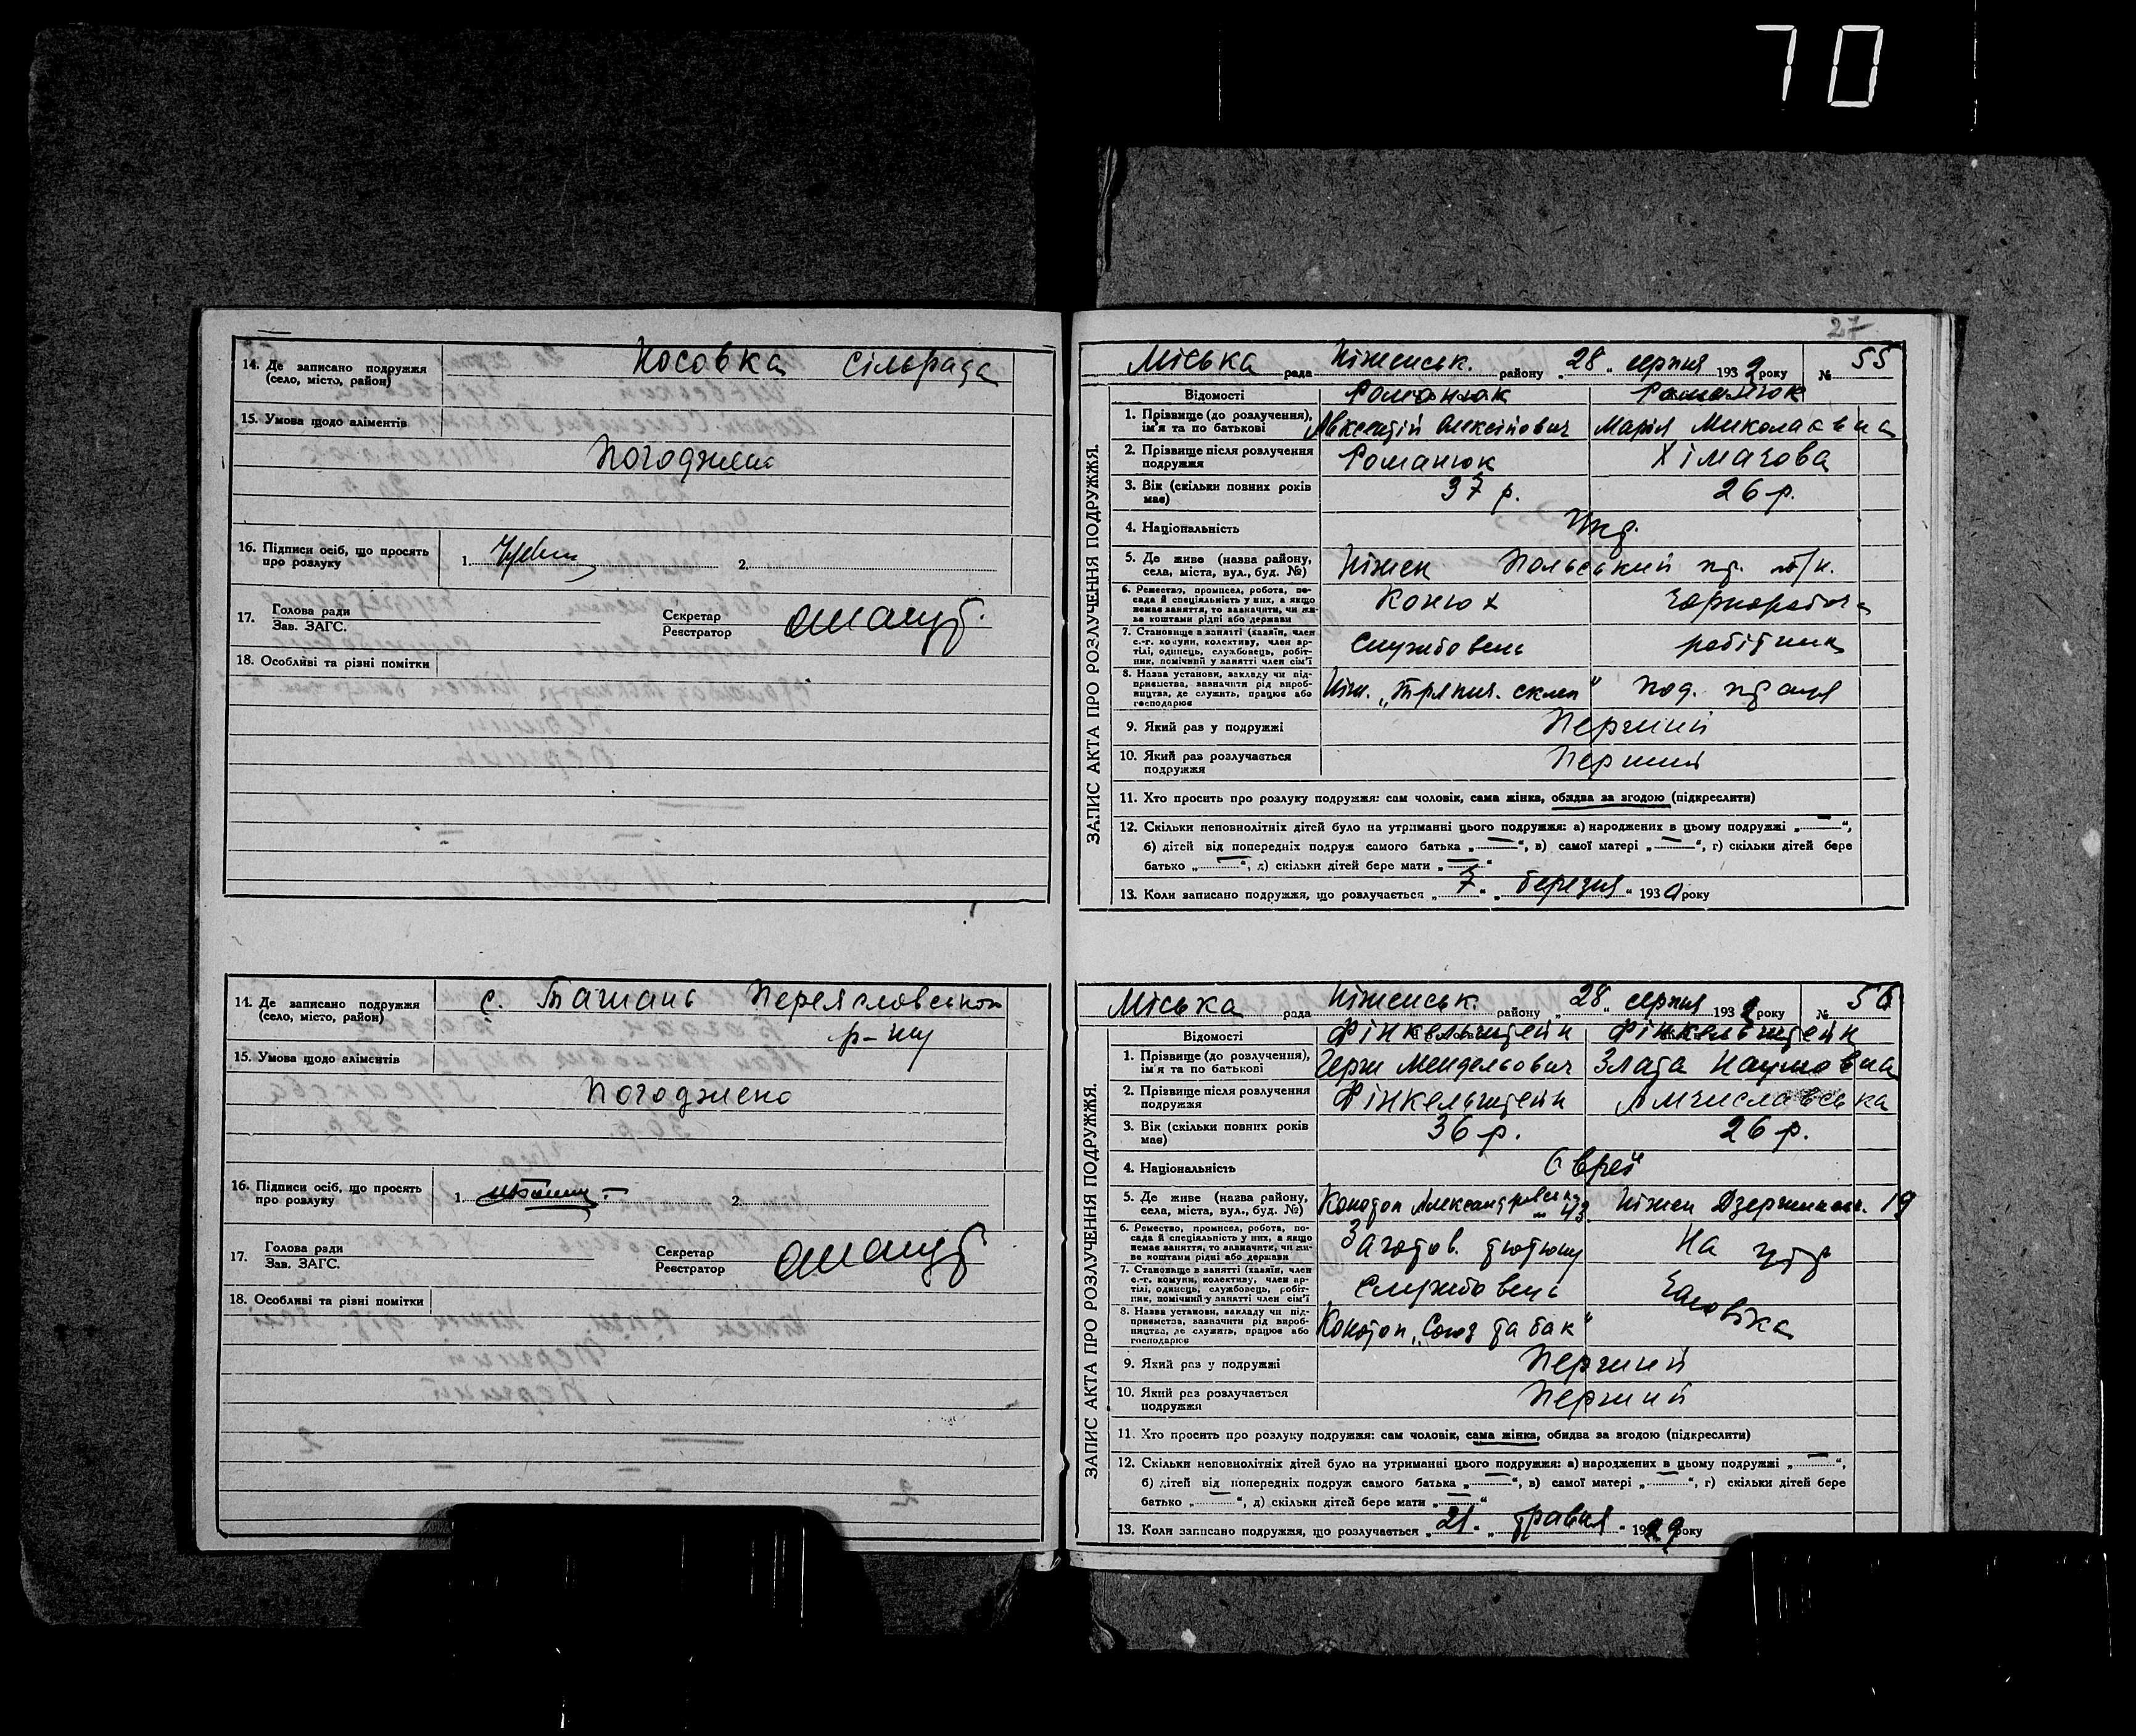 70
14. Де записано подружжя Носовка Сільрада
(село, місто, район)
15. Умова щодо аліментів
Погоджено
16. Підписи осіб, що просять
про розлуку 1. 2.
17. Голова ради
Зав. ЗАГС.
Секретар
Реєстратор
18. Особливі та різні помітки
14. Де записано подружжя с. Ташань Переясловськог
(село, місто, район) р-ну
15. Умова щодо аліментів
Погоджено
16. Підписи осіб, що просять
про розлуку 1. 2.
17. Голова ради
Зав. ЗАГС.
Секретар
Реєстратор
18. Особливі та різні помітки
27
ЗАПИС АКТА ПРО РОЗЛУЧЕННЯ ПОДРУЖЖЯ.
Міська рада Ніженськ. району „28“ серпня 1932 року № 55
Відомості Романюк Романюк
1. Прізвище (до розлучення), Авксентій Олексійович Марія Миколаєвна
ім'я та по батькові
2. Прізвище після розлучення Романюк Хімачова
подружжя
3. Вік (скільки повних років 37 р. 26 р.
має)
4. Національність Укр.
5. Де живе (назва району, Ніжен Польський
села, міста, вул., буд. №)
6. Ремество, промисел, робота, по- Конюх Чорнороб
сада й спеціяльність у них, а якщо
немає заняття, то зазначити, чи жи-
ве коштами рідні або держави
7. Становище в занятті (хазяїн, член Службовець робітниц
с.-г. комуни, колективу, член ар-
тілі, одинець, службовець, робіт-
ник, помічний у занятті член сім'ї
8. Назва установи, закладу чи під- Ніж. „Тряпич. склад“ под. праця
приємства, зазначити рід вироб-
ництва, де служить, працює або
господарює
9. Який раз у подружжі Перший
10. Який раз розлучається Перший
подружжя
11. Хто просить про розлуку подружжя: сам чоловік, сама жінка, обидва за згодою (підкреслити)
12. Скільки неповнолітніх дітей було на утриманні цього подружжя: а) народжених в цьому подружжі „—“,
б) дітей від попередніх подруж самого батька „—“, в) самої матері „—“, г) скільки дітей бере
батько „—“, д) скільки дітей бере мати „—“
13. Коли записано подружжя, що розлучається „7“ „березня“ 1930 року
ЗАПИС АКТА ПРО РОЗЛУЧЕННЯ ПОДРУЖЖЯ.
Міська рада Ніженськ. району „28“ серпня 1932 року № 56
Відомості Фінкельштейн Фінкельштейн
1. Прізвище (до розлучення), Герш Мендельович Злата Наумовна
ім'я та по батькові
2. Прізвище після розлучення Фінкельштейн Амчиславська
подружжя
3. Вік (скільки повних років 36 р. 26 р.
має)
4. Національність Єврей
5. Де живе (назва району, Конотоп 43 Ніжен Дзержинськ. 19
села, міста, вул., буд. №)
6. Ремество, промисел, робота, по- Заготов. тютюну На утр
сада й спеціяльність у них, а якщо
немає заняття, то зазначити, чи жи-
ве коштами рідні або держави
7. Становище в занятті (хазяїн, член Службовець
с.-г. комуни, колективу, член ар- Чоловіка
тілі, одинець, службовець, робіт-
ник, помічний у занятті член сім'ї
8. Назва установи, закладу чи під- Конотоп „Союзтабак“
приємства, зазначити рід вироб-
ництва, де служить, працює або
господарює
9. Який раз у подружжі Перший
10. Який раз розлучається Перший
подружжя
11. Хто просить про розлуку подружжя: сам чоловік, сама жінка, обидва за згодою (підкреслити)
12. Скільки неповнолітніх дітей було на утриманні цього подружжя: а) народжених в цьому подружжі „—“,
б) дітей від попередніх подруж самого батька „—“, в) самої матері „—“, г) скільки дітей бере
батько „—“, д) скільки дітей бере мати „—“
13. Коли записано подружжя, що розлучається „21“ „травня“ 1929 року